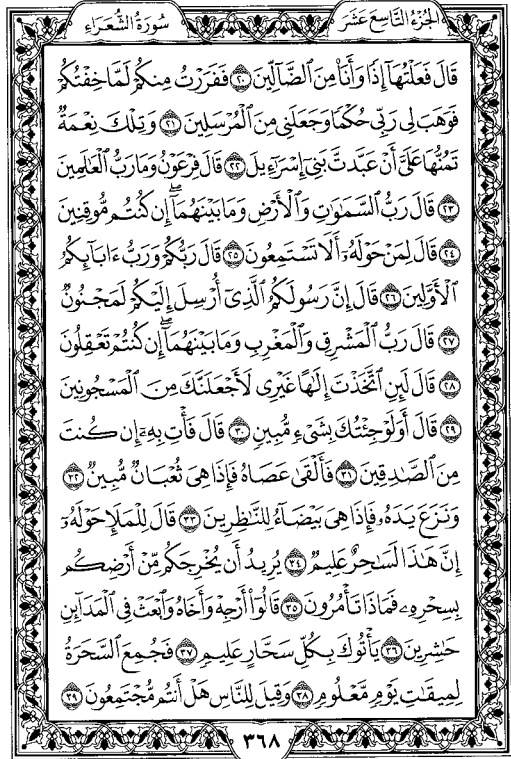 الجُزْءُ التَّاسِعَ عَشَرَ
سُورَةُ الشُّعَرَاءِ
قَالَ فَعَلْتُهَآ إِذًا وَأَنَا۠ مِنَ ٱلضَّآلِّينَ ٢٠ فَفَرَرْتُ مِنكُمْ لَمَّا خِفْتُكُمْ
فَوَهَبَ لِى رَبِّى حُكْمًا وَجَعَلَنِى مِنَ ٱلْمُرْسَلِينَ ٢١ وَتِلْكَ نِعْمَةٌ
تَمُنُّهَا عَلَىَّ أَنْ عَبَّدتَّ بَنِىٓ إِسْرَٰٓءِيلَ ٢٢ قَالَ فِرْعَوْنُ وَمَا رَبُّ ٱلْعَٰلَمِينَ
٢٣ قَالَ رَبُّ ٱلسَّمَٰوَٰتِ وَٱلْأَرْضِ وَمَا بَيْنَهُمَآ ۖ إِن كُنتُم مُّوقِنِينَ
٢٤ قَالَ لِمَنْ حَوْلَهُۥٓ أَلَا تَسْتَمِعُونَ ٢٥ قَالَ رَبُّكُمْ وَرَبُّ ءَابَآئِكُمُ
ٱلْأَوَّلِينَ ٢٦ قَالَ إِنَّ رَسُولَكُمُ ٱلَّذِىٓ أُرْسِلَ إِلَيْكُمْ لَمَجْنُونٌ
٢٧ قَالَ رَبُّ ٱلْمَشْرِقِ وَٱلْمَغْرِبِ وَمَا بَيْنَهُمَآ ۖ إِن كُنتُمْ تَعْقِلُونَ
٢٨ قَالَ لَئِنِ ٱتَّخَذْتَ إِلَٰهًا غَيْرِى لَأَجْعَلَنَّكَ مِنَ ٱلْمَسْجُونِينَ
٢٩ قَالَ أَوَلَوْ جِئْتُكَ بِشَىْءٍ مُّبِينٍ ٣٠ قَالَ فَأْتِ بِهِۦٓ إِن كُنتَ
مِنَ ٱلصَّٰدِقِينَ ٣١ فَأَلْقَىٰ عَصَاهُ فَإِذَا هِىَ ثُعْبَانٌ مُّبِينٌ ٣٢
وَنَزَعَ يَدَهُۥ فَإِذَا هِىَ بَيْضَآءُ لِلنَّٰظِرِينَ ٣٣ قَالَ لِلْمَلَإِ حَوْلَهُۥٓ
إِنَّ هَٰذَا لَسَٰحِرٌ عَلِيمٌ ٣٤ يُرِيدُ أَن يُخْرِجَكُم مِّنْ أَرْضِكُم
بِسِحْرِهِۦ فَمَاذَا تَأْمُرُونَ ٣٥ قَالُوٓا۟ أَرْجِهْ وَأَخَاهُ وَٱبْعَثْ فِى ٱلْمَدَآئِنِ
حَٰشِرِينَ ٣٦ يَأْتُوكَ بِكُلِّ سَحَّارٍ عَلِيمٍ ٣٧ فَجُمِعَ ٱلسَّحَرَةُ
لِمِيقَٰتِ يَوْمٍ مَّعْلُومٍ ٣٨ وَقِيلَ لِلنَّاسِ هَلْ أَنتُم مُّجْتَمِعُونَ ٣٩
٣٦٨